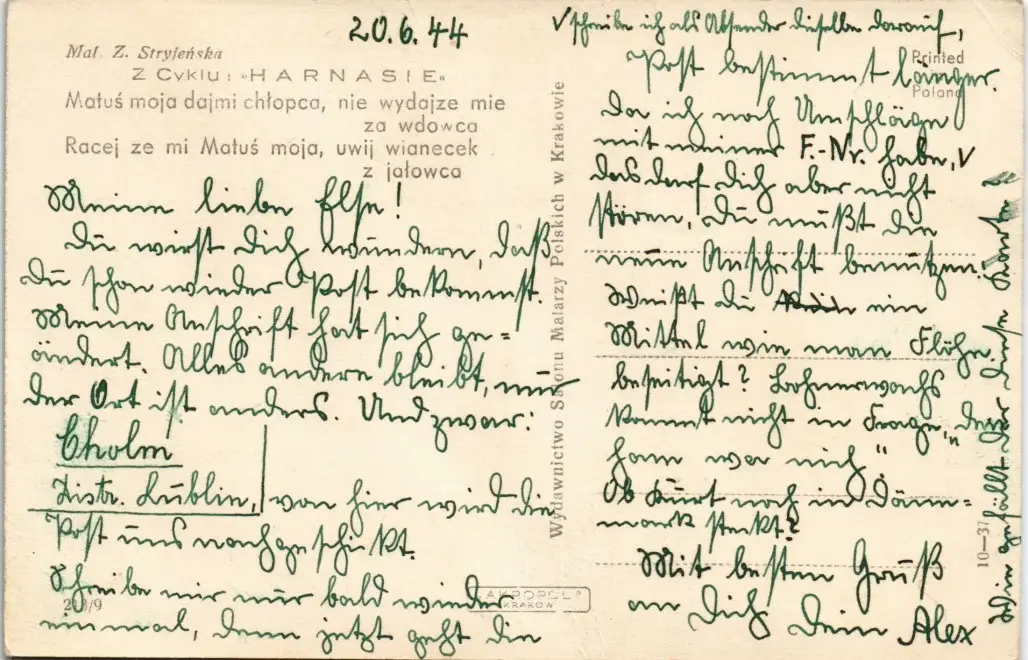 20.6.44
Mal. Z. Stryjeńska
Z Cyklu: »HARNASIE«
Matuś moja dajmi chłopca, nie wydajze mie
za wdowca
Racej ze mi Matuś moja, uwij wianecek
z jałowca
Meine liebe Else!
Du wirst Dich wundern, daß
Du schon wieder Post bekommst.
Meine Anschrift hat sich ge=
ändert. Alles andere bleibt, nur
der Ort ist anders. Und zwar:
Cholm
Distr. Lublin, von hier wird die
Post uns nachgeschickt.
Schreibe mir nur bald wieder
einmal, denn jetzt geht die
213/9
AKROPOL
KRAKÓW
Wydawnictwo Salonu Malarzy Polskich w Krakowie
√ schreibe ich als Absender dieselbe darauf,
Post bestimmt länger.
Printed
Poland
Da ich noch Umschläge
mit meiner F.-Nr. habe, √
das darf Dich aber nicht
stören. Du mußt die
neue Anschrift benutzen.
Weißt du ein
Mittel wie man Flöhe
beseitigt? Bohnerwachs
kommt nicht in Frage, „denn
hann wer nich"
Ob Kurt noch in Däne=
mark steckt?
Mit besten Gruß
an Dich Dein Alex
10—37
Wie gefällt Dir diese Karte?